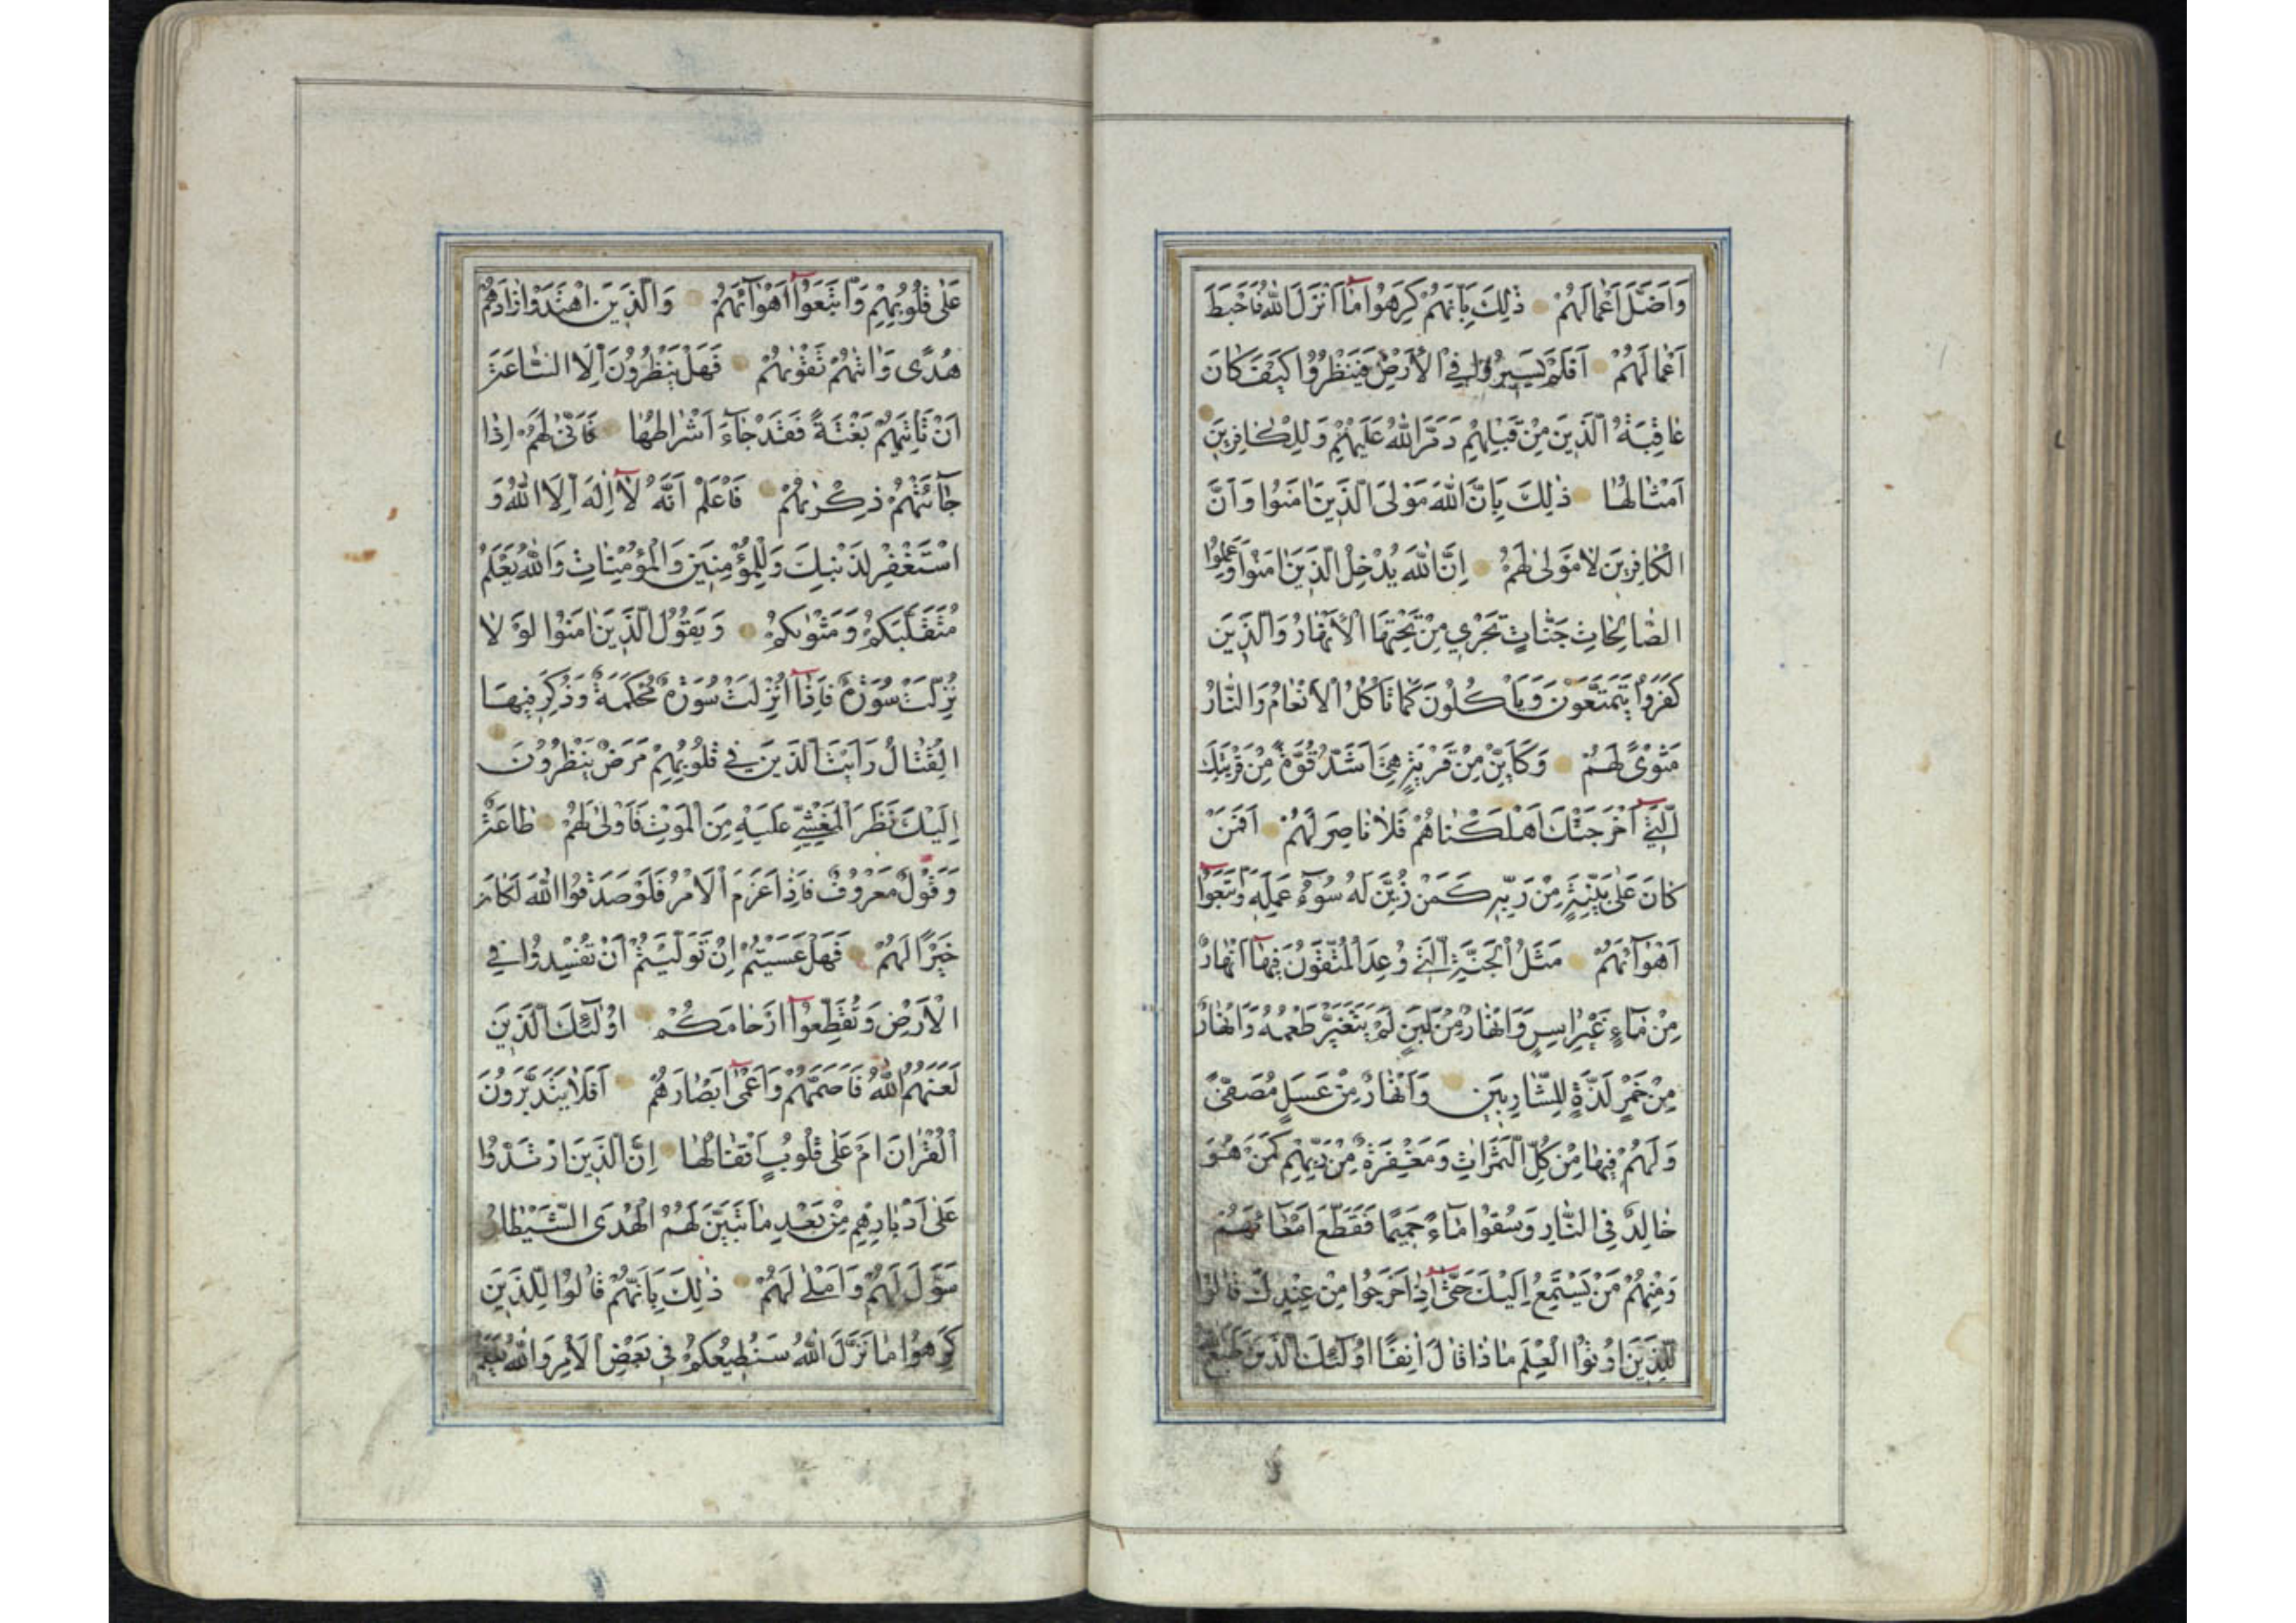 وَاَضَلَّ اَعْمَالَهُمْ ذٰلِكَ بِاَنَّهُمْ كَرِهُوا مٰا اَنْزَلَ اللّٰهُ فَاَحْبَطَ
اَعْمٰالَهُمْ اَفَلَمْ يَسيرُوا فِى الْاَرْضِ فَيَنْظُرُوا كَيْفَ كٰانَ
عٰاقِبَةُ الَّذينَ مِنْ قَبْلِهِمْ دَمَّرَ اللّٰهُ عَلَيْهِمْ وَلِلْكٰافِرينَ
اَمْثٰالُهٰا ذٰلِكَ بِاَنَّ اللّٰهَ مَوْلَى الَّذينَ اٰمَنُوا وَاَنَّ
الْكٰافِرينَ لٰا مَوْلٰى لَهُمْ اِنَّ اللّٰهَ يُدْخِلُ الَّذينَ اٰمَنُوا وَعَمِلُوا
الصّٰالِحٰاتِ جَنّٰاتٍ تَجْري مِنْ تَحْتِهَا الْاَنْهٰارُ وَالَّذينَ
كَفَرُوا يَتَمَتَّعُونَ وَيَاْكُلُونَ كَمٰا تَاْكُلُ الْاَنْعٰامُ وَالنّٰارُ
مَثْوًى لَهُمْ وَكَاَيِّنْ مِنْ قَرْيَةٍ هِيَ اَشَدُّ قُوَّةً مِنْ قَرْيَتِكَ
الَّتي اَخْرَجَتْكَ اَهْلَكْنٰاهُمْ فَلٰا نٰاصِرَ لَهُمْ اَفَمَنْ
كٰانَ عَلٰى بَيِّنَةٍ مِنْ رَبِّهِ كَمَنْ زُيِّنَ لَهُ سُوۤءُ عَمَلِهِ وَاتَّبَعُوا
اَهْوٰآئَهُمْ مَثَلُ الْجَنَّةِ الَّتي وُعِدَ الْمُتَّقُونَ فيهٰا اَنْهٰارٌ
مِنْ مٰاۤءٍ غَيْرِ اٰسِنٍ وَاَنْهٰارٌ مِنْ لَبَنٍ لَمْ يَتَغَيَّرْ طَعْمُهُ وَاَنْهٰارٌ
مِنْ خَمْرٍ لَذَّةٍ لِلشّٰارِبينَ وَاَنْهٰارٌ مِنْ عَسَلٍ مُصَفًّى
وَلَهُمْ فيهٰا مِنْ كُلِّ الثَّمَرٰاتِ وَمَغْفِرَةٌ مِنْ رَبِّهِمْ كَمَنْ هُوَ
خٰالِدٌ فِى النّٰارِ وَسُقُوا مٰاۤءً حَميمًا فَقَطَّعَ اَمْعٰاۤئَهُمْ
وَمِنْهُمْ مَنْ يَسْتَمِعُ اِلَيْكَ حَتّٰى اِذٰا خَرَجُوا مِنْ عِنْدِكَ قٰالُوا
لِلَّذينَ اُوتُوا الْعِلْمَ مٰاذٰا قٰالَ اٰنِفًا اُولٰۤئِكَ الَّذينَ طَبَعَ
عَلٰى قُلُوبِهِمْ وَاتَّبَعُوا اَهْوٰآئَهُمْ وَالَّذينَ اهْتَدَوْا زٰادَهُمْ
هُدًى وَاٰتٰهُمْ تَقْوٰىهُمْ فَهَلْ يَنْظُرُونَ اِلَّا السّٰاعَةَ
اَنْ تَاْتِيَهُمْ بَغْتَةً فَقَدْ جٰاۤءَ اَشْرٰاطُهٰا فَاَنّٰى لَهُمْ اِذٰا
جٰآئَتْهُمْ ذِكْرٰىهُمْ فَاعْلَمْ اَنَّهُ لٰا اِلٰهَ اِلَّا اللّٰهُ وَ
اسْتَغْفِرْ لِذَنْبِكَ وَلِلْمُؤْمِنينَ وَالْمُؤْمِنٰاتِ وَاللّٰهُ يَعْلَمُ
مُتَقَلَّبَكُمْ وَمَثْوٰىكُمْ وَيَقُولُ الَّذينَ اٰمَنُوا لَوْ لٰا
نُزِّلَتْ سُورَةٌ فَاِذٰا اُنْزِلَتْ سُورَةٌ مُحْكَمَةٌ وَذُكِرَ فيهَا
الْقِتٰالُ رَاَيْتَ الَّذينَ في قُلُوبِهِمْ مَرَضٌ يَنْظُرُونَ
اِلَيْكَ نَظَرَ الْمَغْشِيِّ عَلَيْهِ مِنَ الْمَوْتِ فَاَوْلٰى لَهُمْ طٰاعَةٌ
وَقَوْلٌ مَعْرُوفٌ فَاِذٰا عَزَمَ الْاَمْرُ فَلَوْ صَدَقُوا اللّٰهَ لَكٰانَ
خَيْرًا لَهُمْ فَهَلْ عَسَيْتُمْ اِنْ تَوَلَّيْتُمْ اَنْ تُفْسِدُوا فِي
الْاَرْضِ وَتُقَطِّعُوا اَرْحٰامَكُمْ اُولٰۤئِكَ الَّذينَ
لَعَنَهُمُ اللّٰهُ فَاَصَمَّهُمْ وَاَعْمٰى اَبْصٰارَهُمْ اَفَلٰا يَتَدَبَّرُونَ
الْقُرْاٰنَ اَمْ عَلٰى قُلُوبٍ اَقْفٰالُهٰا اِنَّ الَّذينَ ارْتَدُّوا
عَلٰى اَدْبٰارِهِمْ مِنْ بَعْدِ مٰا تَبَيَّنَ لَهُمُ الْهُدَى الشَّيْطٰانُ
سَوَّلَ لَهُمْ وَاَمْلٰى لَهُمْ ذٰلِكَ بِاَنَّهُمْ قٰالُوا لِلَّذينَ
كَرِهُوا مٰا نَزَّلَ اللّٰهُ سَنُطيعُكُمْ في بَعْضِ الْاَمْرِ وَاللّٰهُ يَعْلَمُ